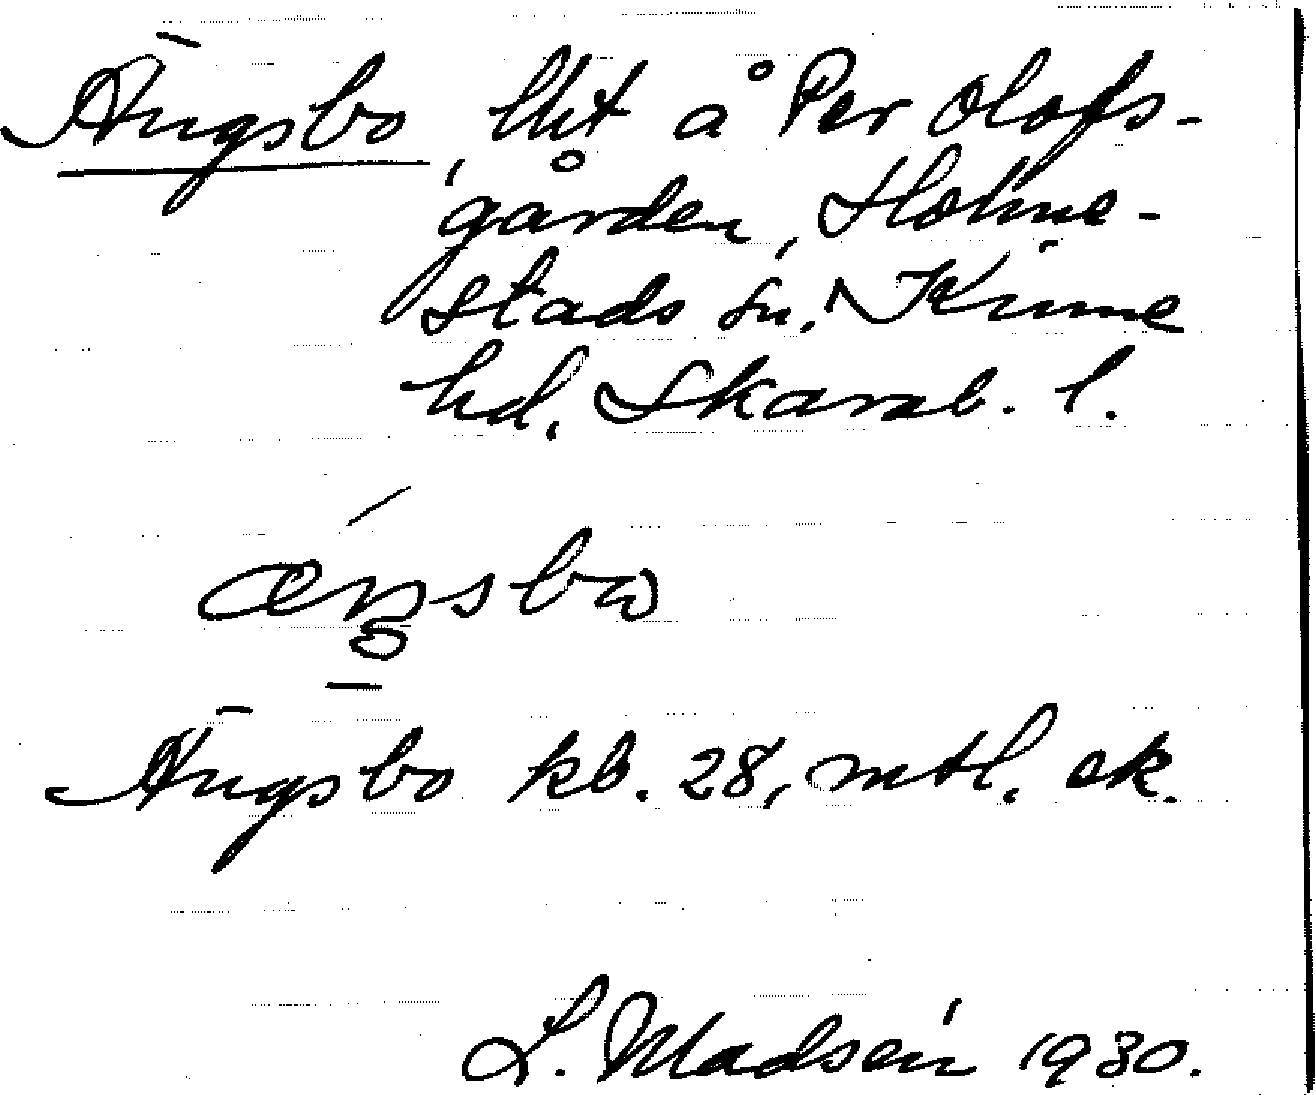 Ängsbo, lht å Per Olofs-
gården, Holme-
stads sn, Kinne
hd, Skarab. l.
æŋsbω
Ängsbo kb. 28, mtl. ek.
L. Madsén 1930.